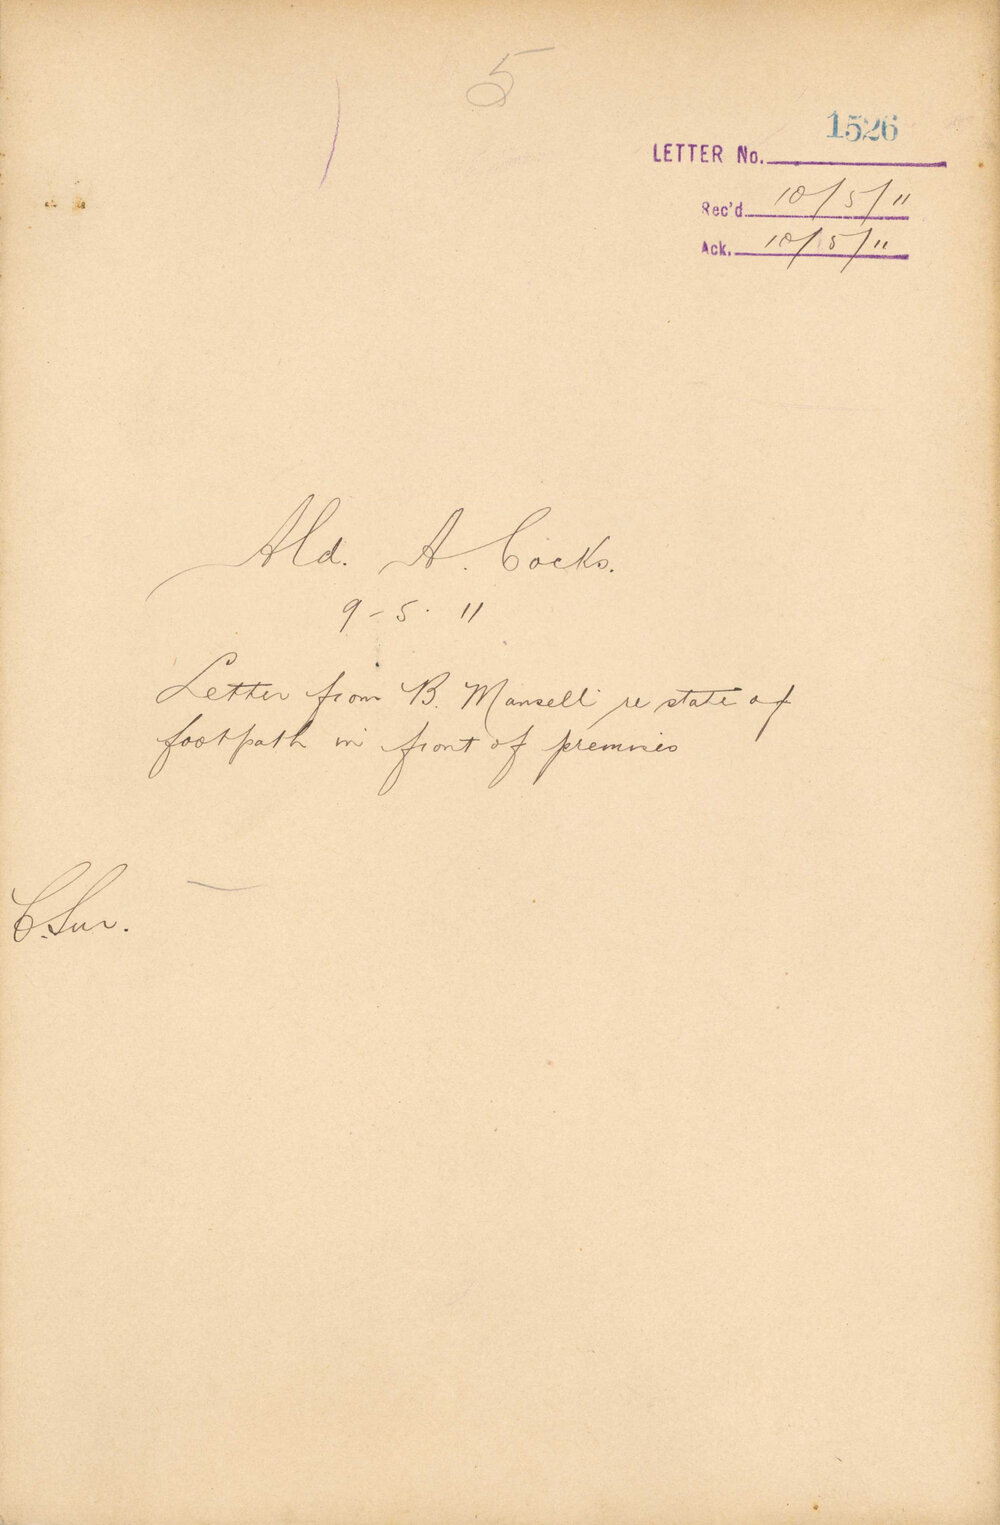 5
1526
LETTER No.
Rec'd 10/5/11
Ack. 10/5/11
Ald. A. Cocks.
9-5.11
Letter from B. Mansell re state of
footpath in front of premises
C. Sur.